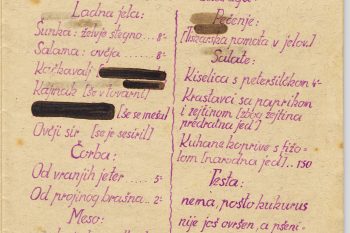 Ladna jela:
Šunka: želvje stegno... 8-
Salama: ovčja..... 8-
Kačkavalj
Kajmak [še v tovarni]
[še se meša]
Ovčji sir [se je sesiril]
Čorba:
Od vranjih jeter..... 5-
Od projinog brašna.. 2-
Meso:
Pečenje:
[Nizarska pomota v jelov.]
Salate:
Kiselica s peteršiljkom 4-
Krastavci sa paprikom
i zejtinom [zbog zejtina
predratna jed]
Kuhane koprive s fižo-
lom [narodna jed].. 1.50
Testa:
nema, pošto kukurus
nije još ovršen, a pšeni-